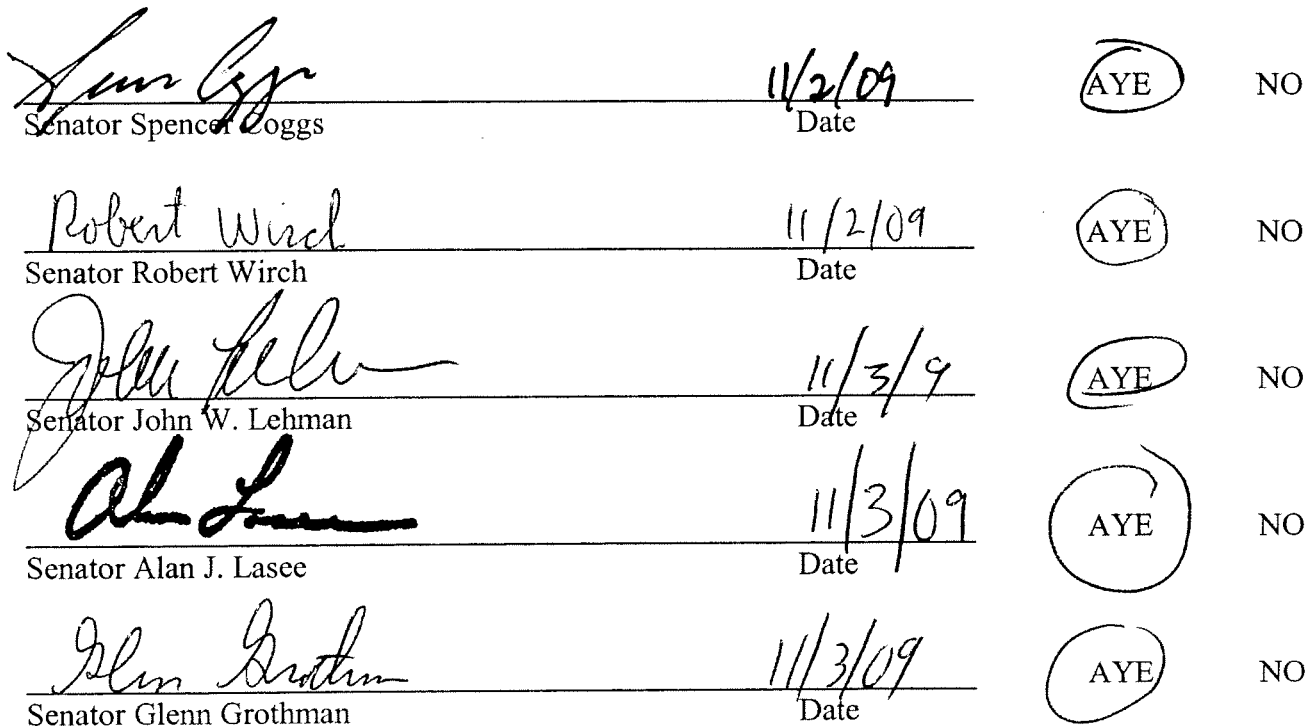 Spencer Coggs 11/2/09 AYE NO
Senator Spencer Coggs Date
Robert Wirch 11/2/09 AYE NO
Senator Robert Wirch Date
John Lehman 11/3/9 AYE NO
Senator John W. Lehman Date
Alan Lasee 11/3/09 AYE NO
Senator Alan J. Lasee Date
Glenn Grothman 11/3/09 AYE NO
Senator Glenn Grothman Date